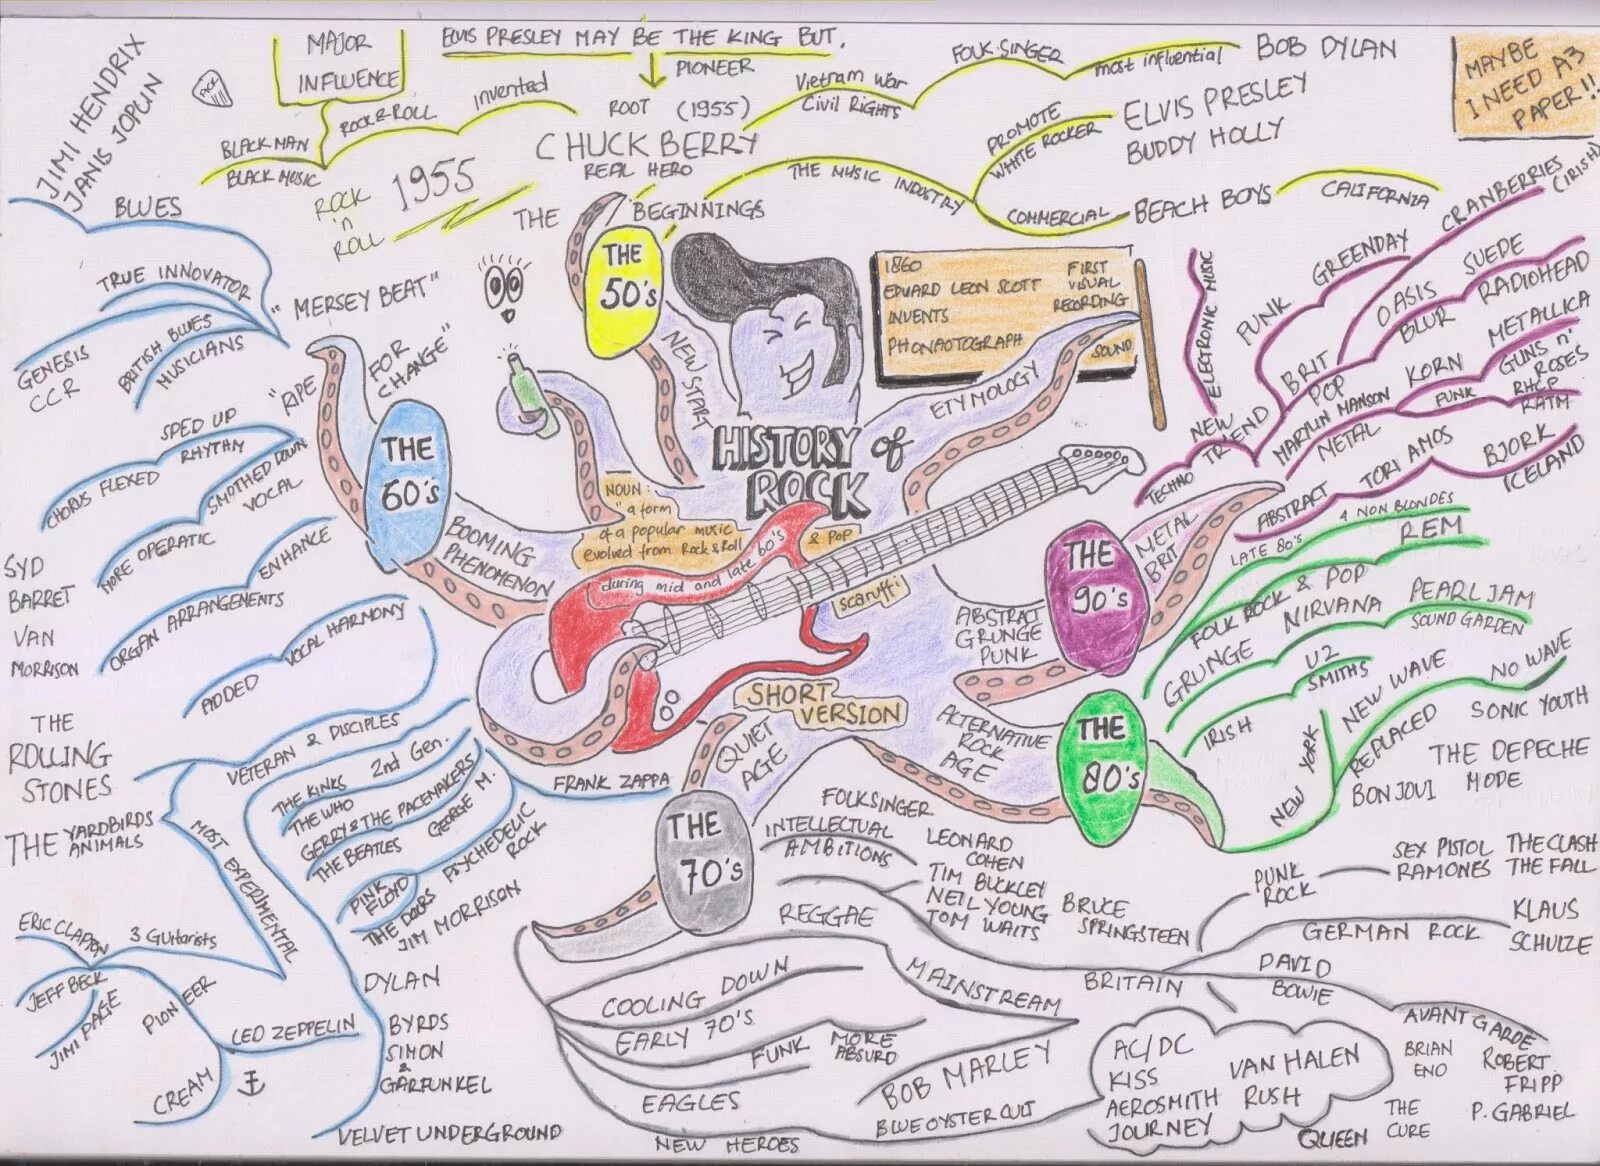 MAJOR
INFLUENCE
ELVIS PRESLEY MAY BE THE KING BUT,
PIONEER
ROOT (1955)
CHUCK BERRY
REAL HERO
JIMI HENDRIX
JANIS JOPLIN
PICK
BLACK MAN
BLACK MUSIC
ROCK & ROLL
invented
ROCK
'n'
ROLL
1955
THE BEGINNINGS
Vietnam War
Civil Rights
FOLK SINGER
most influential
BOB DYLAN
THE MUSIC INDUSTRY
PROMOTE
WHITE ROCKER
ELVIS PRESLEY
BUDDY HOLLY
COMMERCIAL
BEACH BOYS
CALIFORNIA
MAYBE
I NEED A3
PAPER!!
THE
50's
NEW START
1860
EDUARD LEON SCOTT
INVENTS
PHONAOTOGRAPH
FIRST
VISUAL
RECORDING
SOUND
ETYMOLOGY
HISTORY of
ROCK
NOUN:
"a form
of a popular music
evolved from Rock & Roll
during mid and late 60's
& POP
scaruffi
SHORT
VERSION
BLUES
TRUE INNOVATOR
"MERSEY BEAT"
"RIPE
FOR
CHANGE"
GENESIS
CCR
BRITISH BLUES
MUSICIANS
THE
60's
BOOMING
PHENOMENON
SPED UP
RHYTHM
CHORUS FLEXED
SMOTHED DOWN
VOCAL
MORE OPERATIC
ENHANCE
ORGAN ARRANGEMENTS
VOCAL HARMONY
ADDED
SYD
BARRET
VAN
MORRISON
THE
ROLLING
STONES
THE YARDBIRDS
ANIMALS
VETERAN & DISCIPLES
2nd Gen.
THE KINKS
THE WHO
GERRY & THE PACEMAKERS
GEORGE M.
THE BEATLES
PINK
FLOYD
PSYCHEDELIC
ROCK
THE DOORS
JIM MORRISON
FRANK ZAPPA
MOST EXPERIMENTAL
ERIC CLAPTON
3 Guitarists
JEFF BECK
JIMI PAGE
PIONEER
LED ZEPPELIN
CREAM
DYLAN
BYRDS
SIMON
&
GARFUNKEL
VELVET UNDERGROUND
QUIET
AGE
THE
70's
FOLKSINGER
INTELLECTUAL
AMBITIONS
LEONARD
COHEN
TIM BUCKLEY
NEIL YOUNG
TOM WAITS
BRUCE
SPRINGSTEEN
REGGAE
COOLING DOWN
EARLY 70'S
MAINSTREAM
FUNK
MORE
ABSURD
BOB MARLEY
EAGLES
BLUE OYSTER CULT
NEW HEROES
AC/DC
KISS
AEROSMITH
JOURNEY
VAN HALEN
RUSH
QUEEN
BRITAIN
PUNK
ROCK
SEX PISTOL
RAMONES
THE CLASH
THE FALL
GERMAN ROCK
KLAUS
SCHULZE
DAVID
BOWIE
AVANT GARDE
BRIAN
ENO
ROBERT
FRIPP
P. GABRIEL
THE
CURE
ALTERNATIVE
ROCK
AGE
THE
80's
LATE 80's
4 NON BLONDES
REM
FOLK ROCK & POP
GRUNGE
NIRVANA
PEARL JAM
SOUND GARDEN
IRISH
U2
SMITHS
NEW YORK
NEW WAVE
REPLACED
NO WAVE
SONIC YOUTH
BON JOVI
THE DEPECHE
MODE
ABSTRACT
GRUNGE
PUNK
THE
90's
METAL
BRIT
NEW
TREND
TECHNO
ELECTRONIC MUSIC
PUNK
GREENDAY
CRANBERRIES
(IRISH)
BRIT
POP
OASIS
BLUR
SUEDE
RADIOHEAD
MARILYN MANSON
METAL
KORN
METALLICA
GUNS n'
ROSES
FUNK
RHCP
RATM
ABSTRACT
TORI AMOS
BJORK
ICELAND